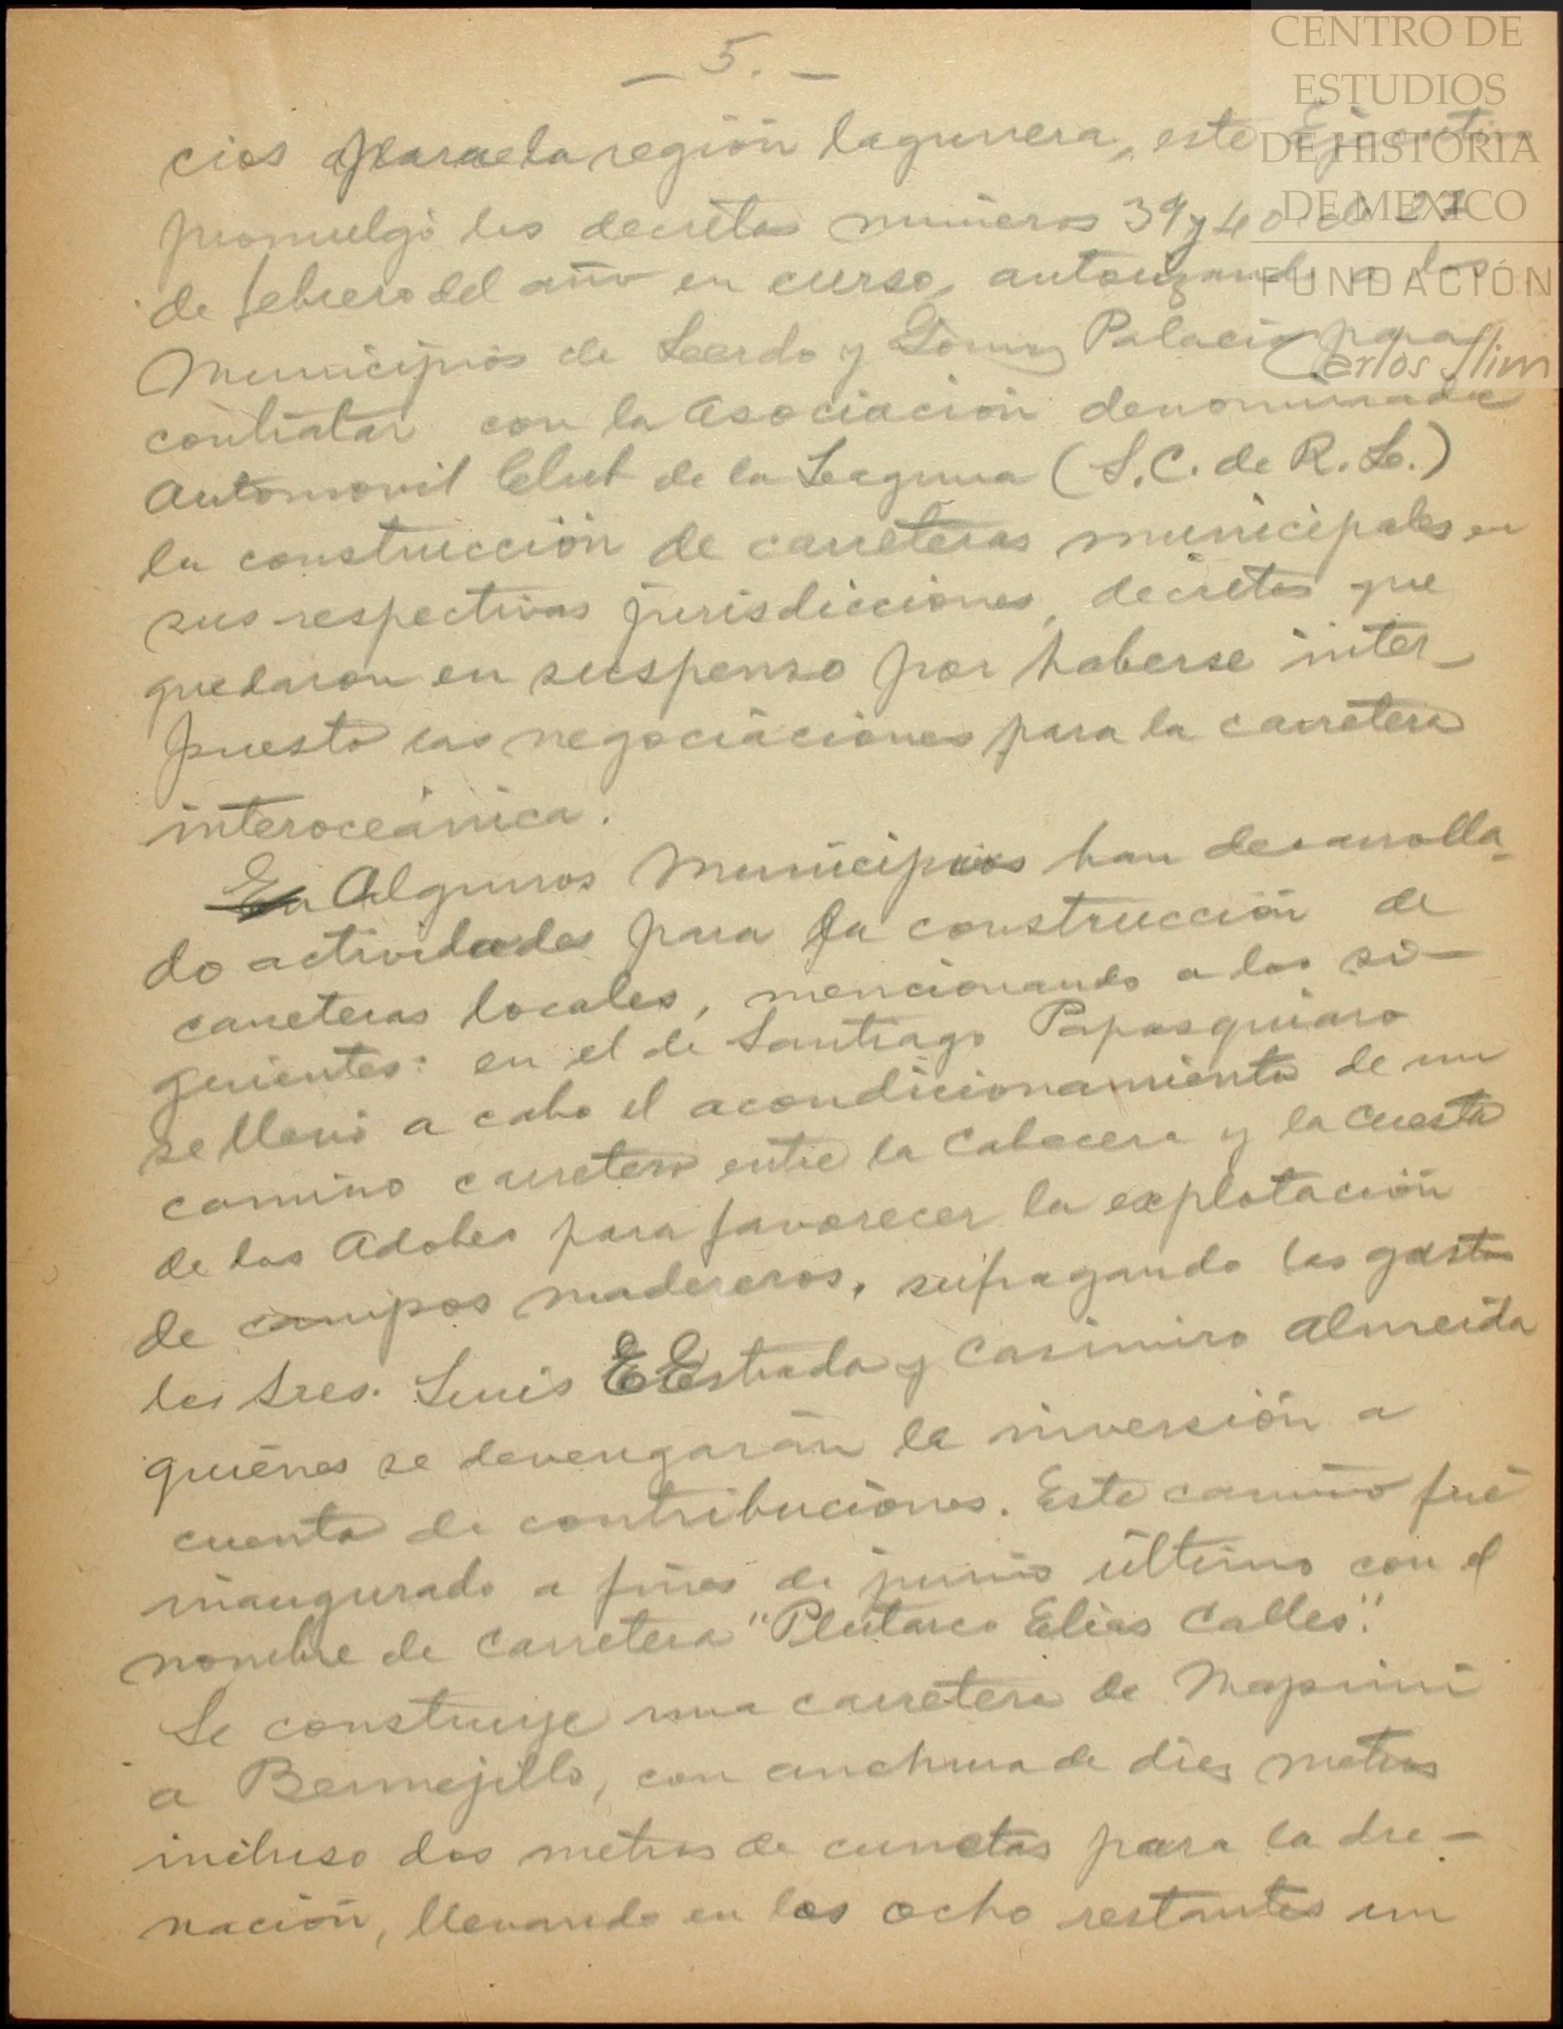 - 5. -
cios para la región lagunera, este Ejecutivo
promulgó los decretos números 39 y 40 de 27
de febrero del año en curso, autorizando a los
Municipios de Lerdo y Gómez Palacio para
contratar con la Asociación denominada
Automovil Club de la Laguna (S.C. de R. L.)
la construcción de carreteras municipales en
sus respectivas jurisdicciones, decretos que
quedaron en suspenso por haberse inter-
puesto las negociaciones para la carretera
interoceánica.
En Algunos Municipios han desarrolla-
do actividades para la construcción de
carreteras locales, mencionando a los si-
guientes: en el de Santiago Papasquiaro
se llevó a cabo el acondicionamiento de un
camino carretero entre la Cabecera y la Cuesta
de los Adobes para favorecer la explotación
de campos madereros, sufragando los gastos
los Sres. Luis E Estrada y Casimiro Almeida
quiénes se devengarán la inversión a
cuenta de contribuciones. Este camino fué
inaugurado a fines de junio último con el
nombre de Carretera "Plutarco Elías Calles".
Se construye una carretera de Mapimí
a Bermejillo, con anchura de diez metros
incluso dos metros de cunetas para la dre-
nación, llevando en los ocho restantes un
CENTRO DE
ESTUDIOS
DE HISTORIA
DE MEXICO
FUNDACIÓN
Carlos Slim